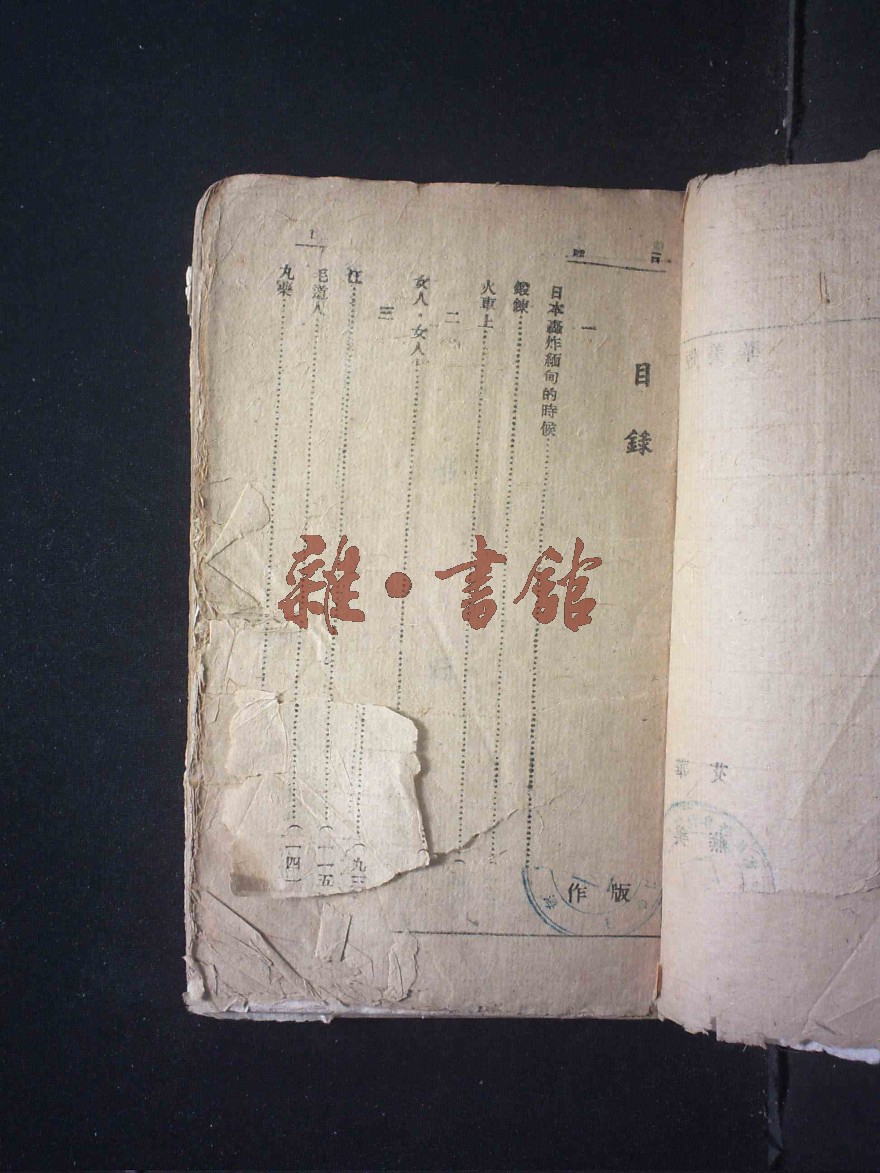 目錄
一
日本轟炸緬甸的時候
鍛鍊
火車上
二
女人・女人
三
江（九三
毛道人（一一五
丸藥（一四一
版
作
雜・書館